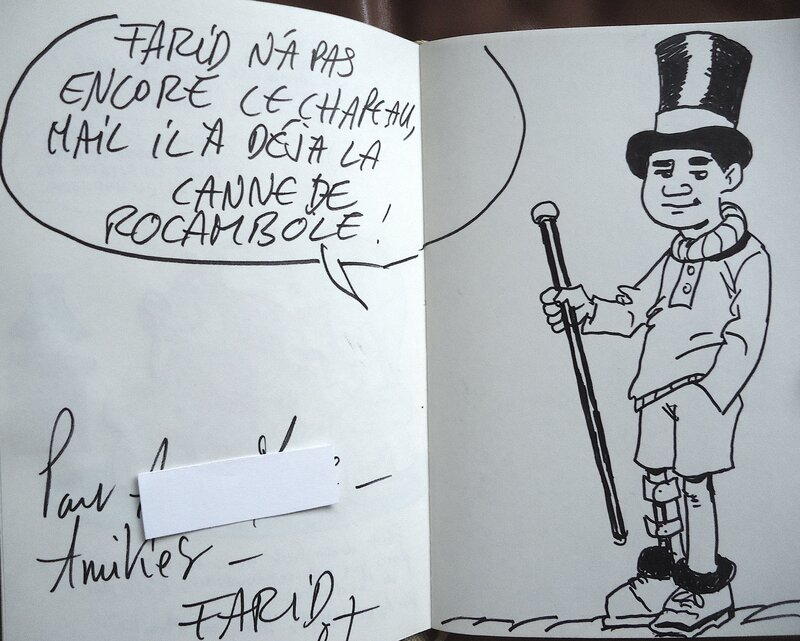 FARID N'A PAS
ENCORE CE CHAPEAU,
MAIL IL A DÉJÀ LA
CANNE DE
ROCAMBOLE !
Pour
Amitiés –
FARID